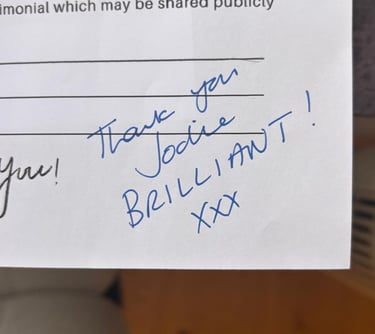 imonial which may be shared publicly
Thank you
Jodie
BRILLIANT!
xxx
You!